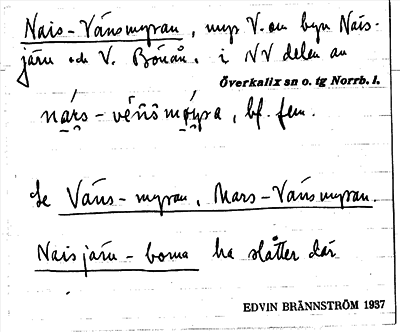 Nais-Vänsmyran, myr V. om byn Nais-
järv och V. Bönån, i NV delen av
Överkalix sn o. tg Norrb. l.
nárs-vens, bf. fem.
Se Väns-myran, Mars-Vänsmyran.
Naisjärv-borna ha slåtter där
EDVIN BRÄNNSTRÖM 1937